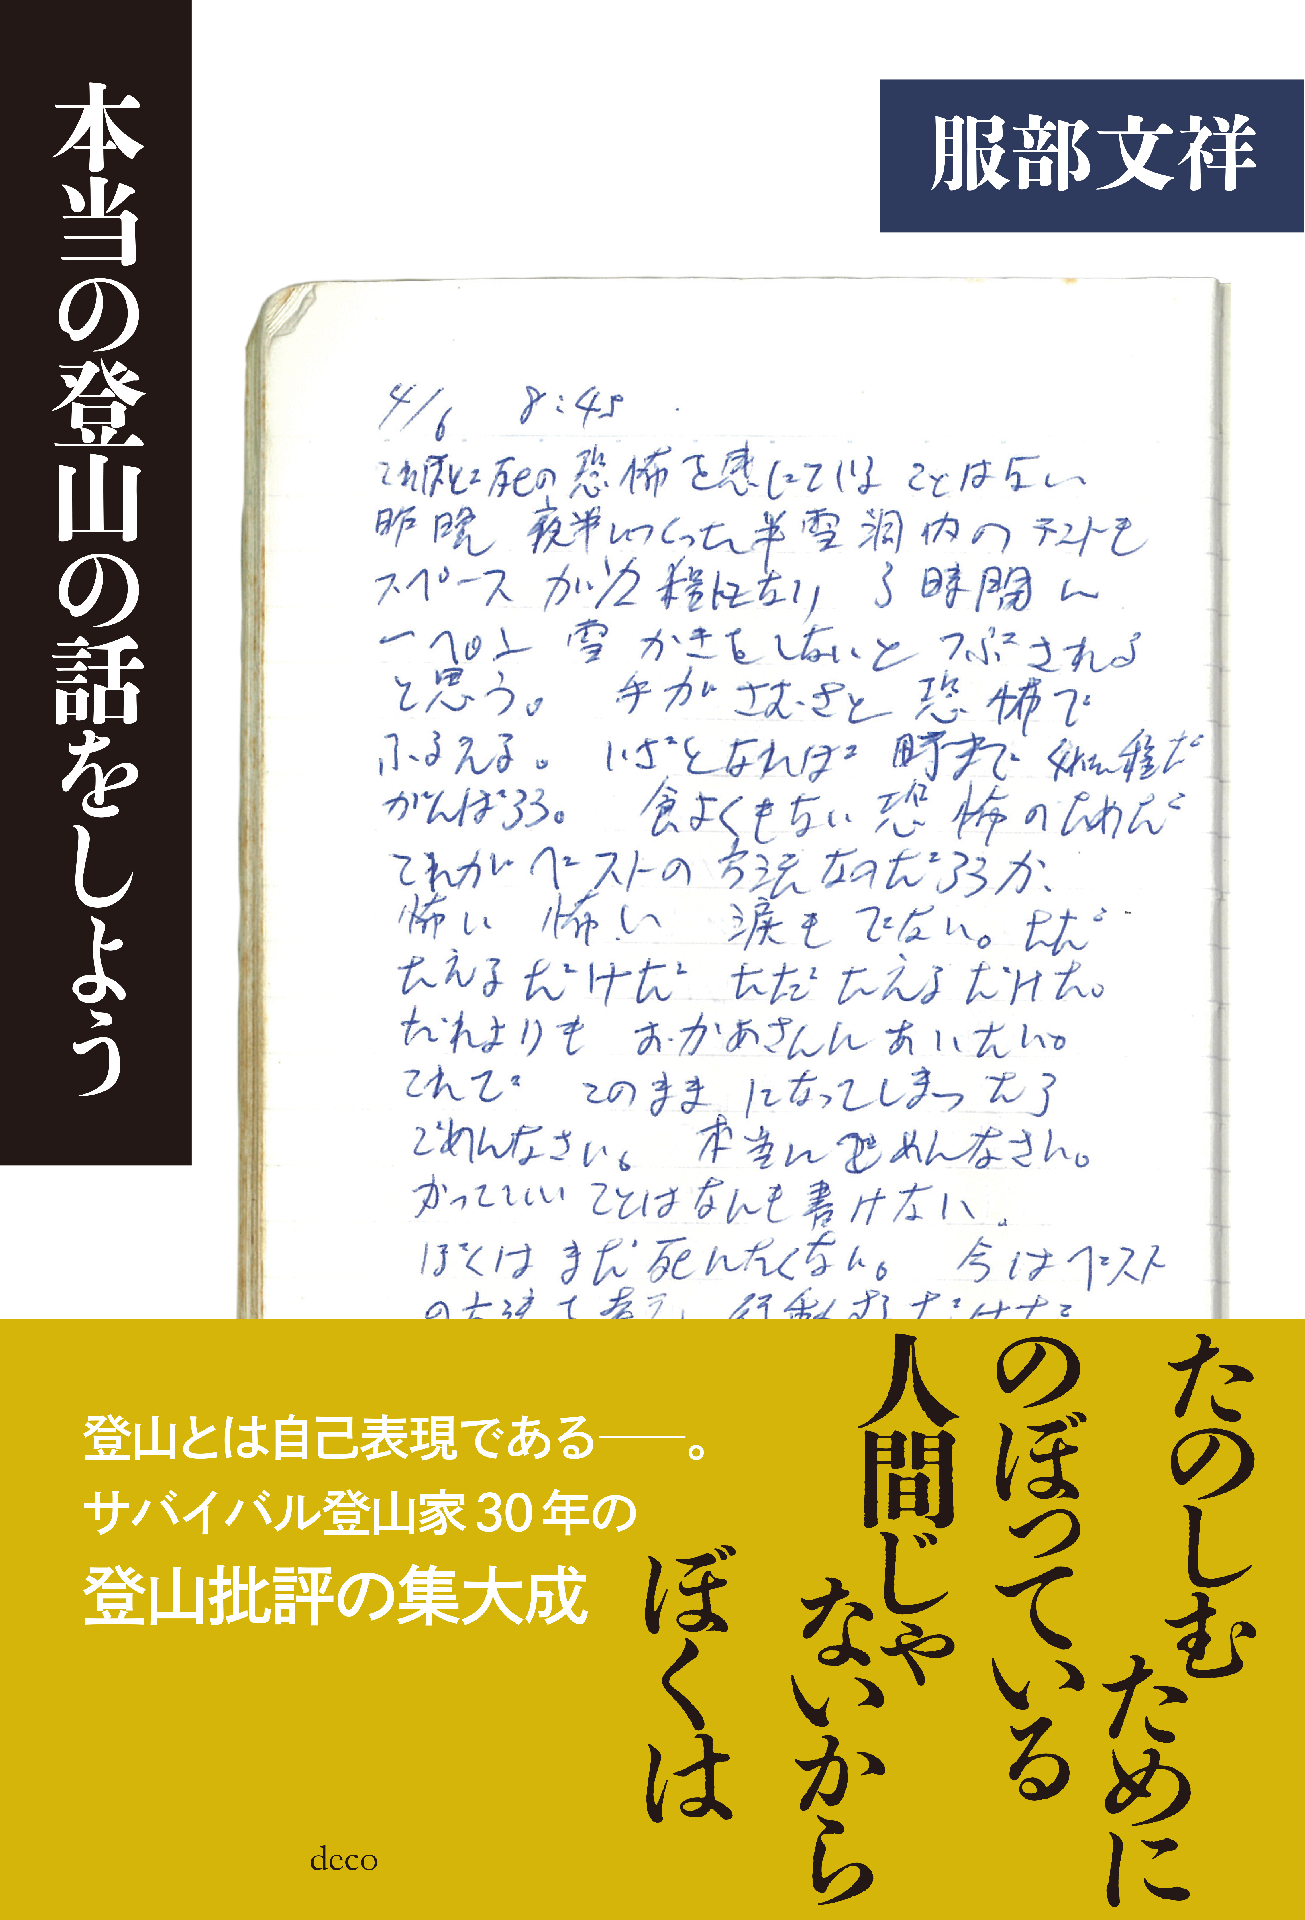 本当の登山の話をしよう
服部文祥
4/6 8:45
これほど死の恐怖を感じていることはない
昨晩 夜半につくった半雪洞内のテントも
スペースが1/2程になり 3時間に
一ぺん 雪かきをしないと つぶされる
と思う。 手がさむさと恐怖で
ふるえる。 いざとなれば
がんばろう。 食よくもない恐怖のためだ
これがベストの方法なのだろうか、
怖い 怖い 涙もでない。ただ
たえるだけだ ただたえるだけだ。
だれよりも おかあさんにあいたい。
これで このままになってしまったら
ごめんなさい。 本当にごめんなさい。
かっこいいことはなんも書けない。
ぼくはまだ死にたくない。 今はベスト
の方法を考え、行動するだけだ
たのしむために
のぼっている
人間じゃないから
ぼくは
登山とは自己表現である——。
サバイバル登山家30年の
登山批評の集大成
deco